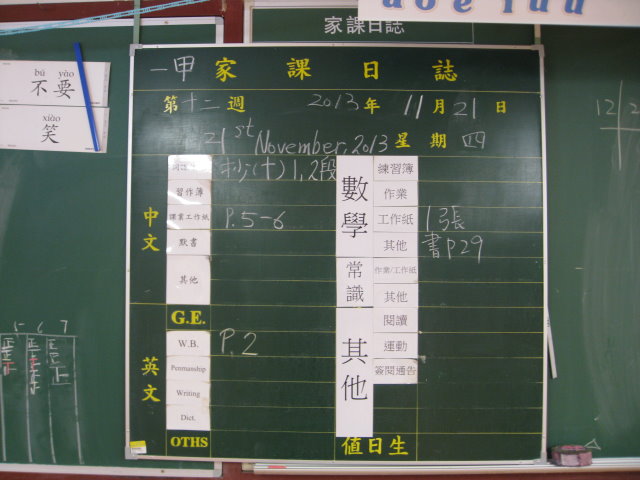 家課日誌
bú yào
不要
xiào
笑
一甲家課日誌
第十二週 2013年 11月21日
21st November, 2013 星期四
中文
抄(十)1,2段
習作簿
課業工作紙 P.5-6
默書
其他
G.E.
英文
W.B. P.2
Penmanship
Writing
Dict.
OTHS
數學
練習簿
作業
工作紙 1張
其他 書P29
常識
作業/工作紙
其他
其他
閱讀
運動
簽閱通告
值日生
5 6 7
12